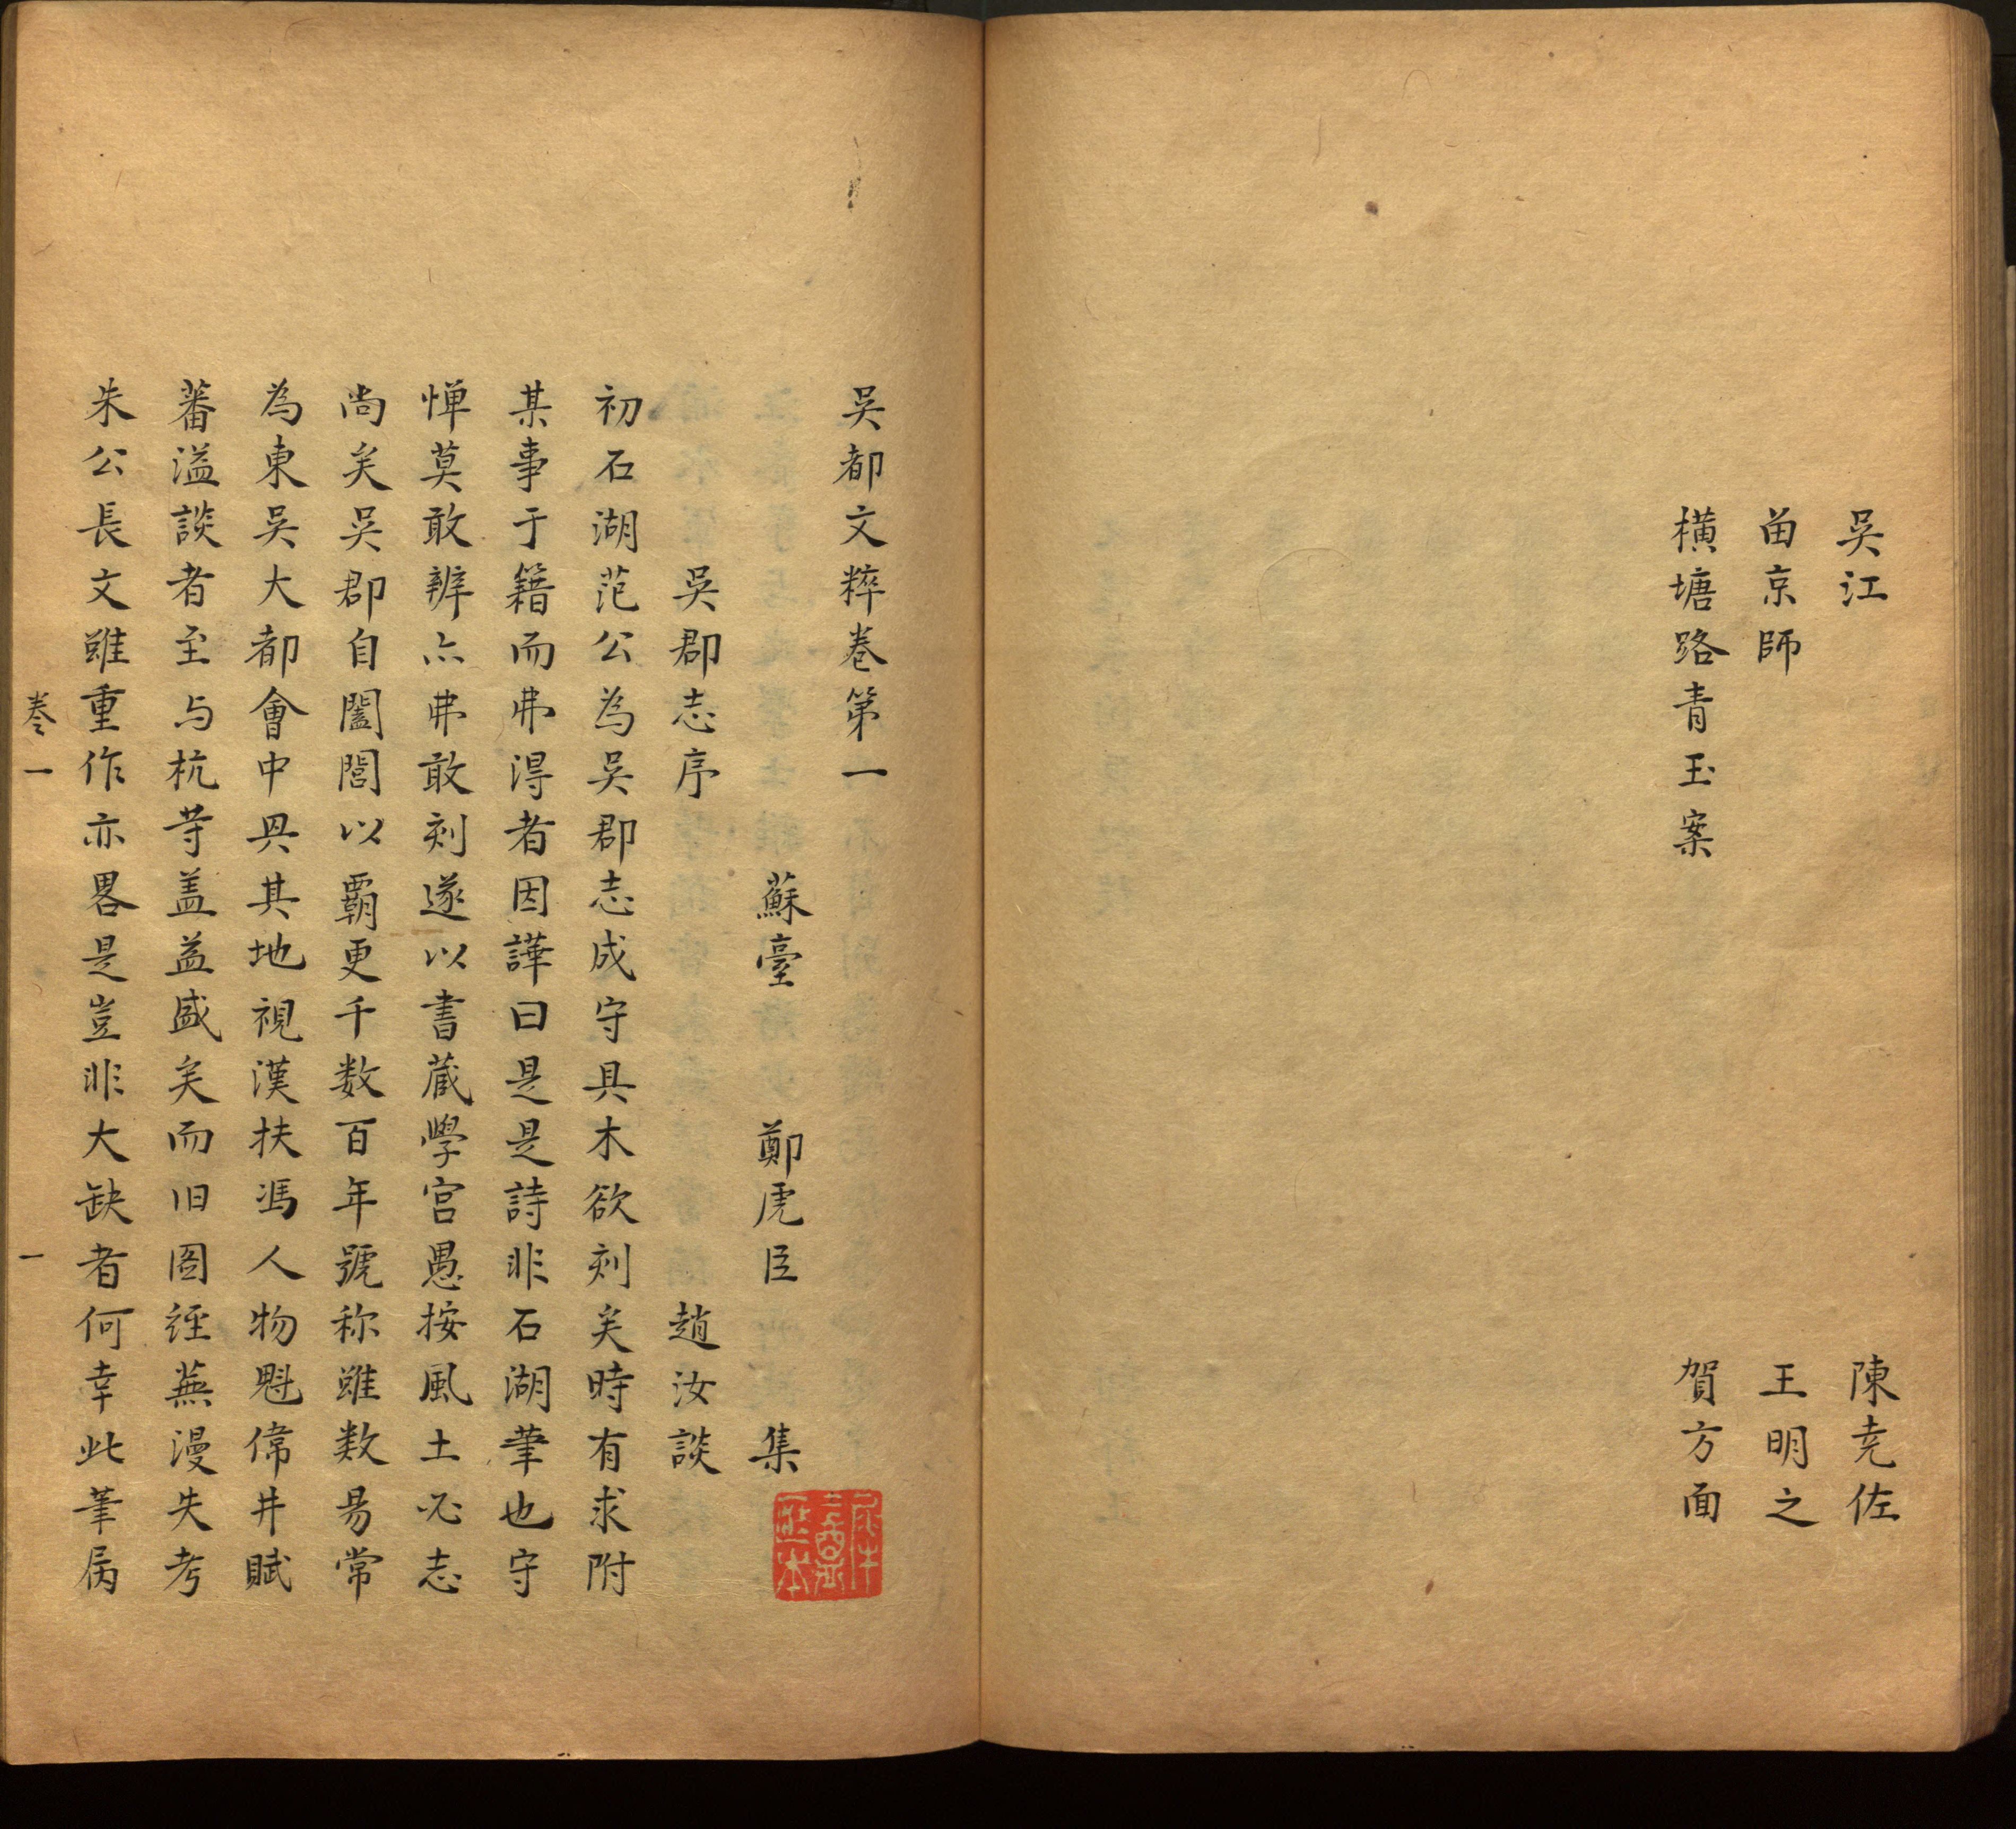 吳江 陳尭佐
畄京師 王明之
橫塘路青玉案 賀方面
吳都文粹卷第一
蘇臺 鄭虎臣 集
吳郡志序 趙汝談
初石湖范公為吳郡志成守具木欲刻矣時有求附
某事于籍而弗淂者因譁曰是是詩非石湖筆也守
惮莫敢辨亦弗敢刻遂以書蔵學宫愚按風土必志
尚矣吳郡自闔閭以霸更千数百年號称雖数易常
為東吳大都會中興其地視漢扶馮人物魁偉井賦
蕃溢談者至与杭等盖益盛矣而旧圖經蕪漫失考
朱公長文雖重作亦畧是豈非大缺者何幸此筆属
卷一 一